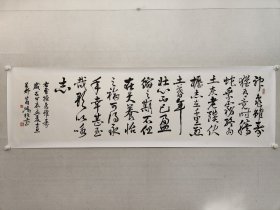 神龜雖壽
猶有竟時騰
蛇乘霧終為
土灰老驥伏
櫪志在千里烈
士暮年
壯心不已盈
縮之期不但
在天養怡
之福可得永
年幸甚至
哉歌以詠
志